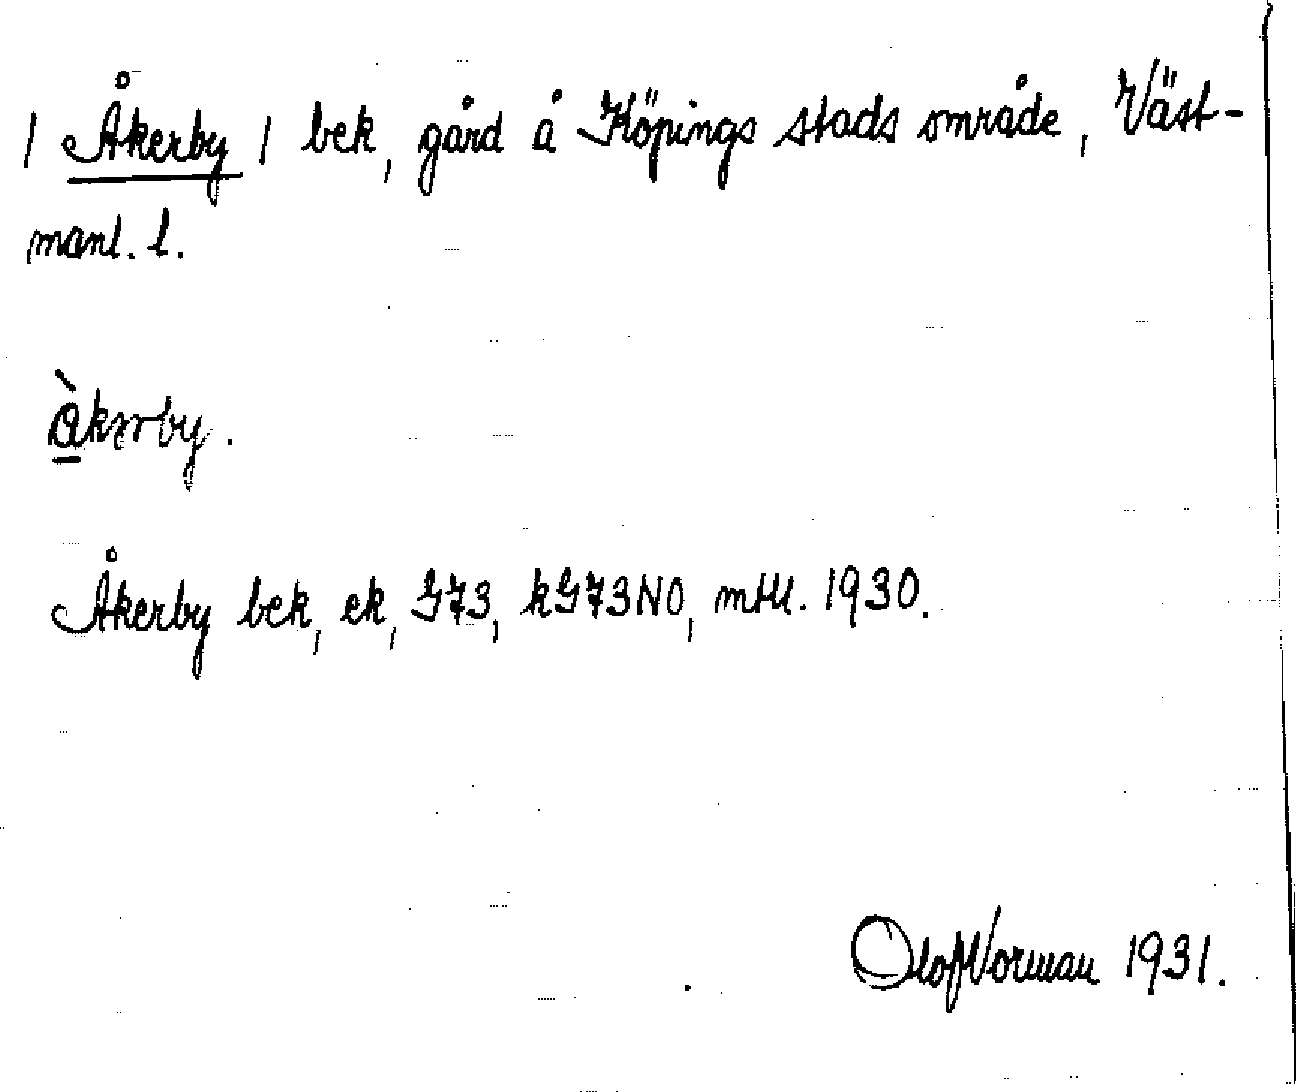 / Åkerby / bek, gård å Köpings stads område, Väst-
manl. l.
àkrrby.
Åkerby bek, ek, G73, kG73NO, mtll. 1930.
Olof Norman 1931.